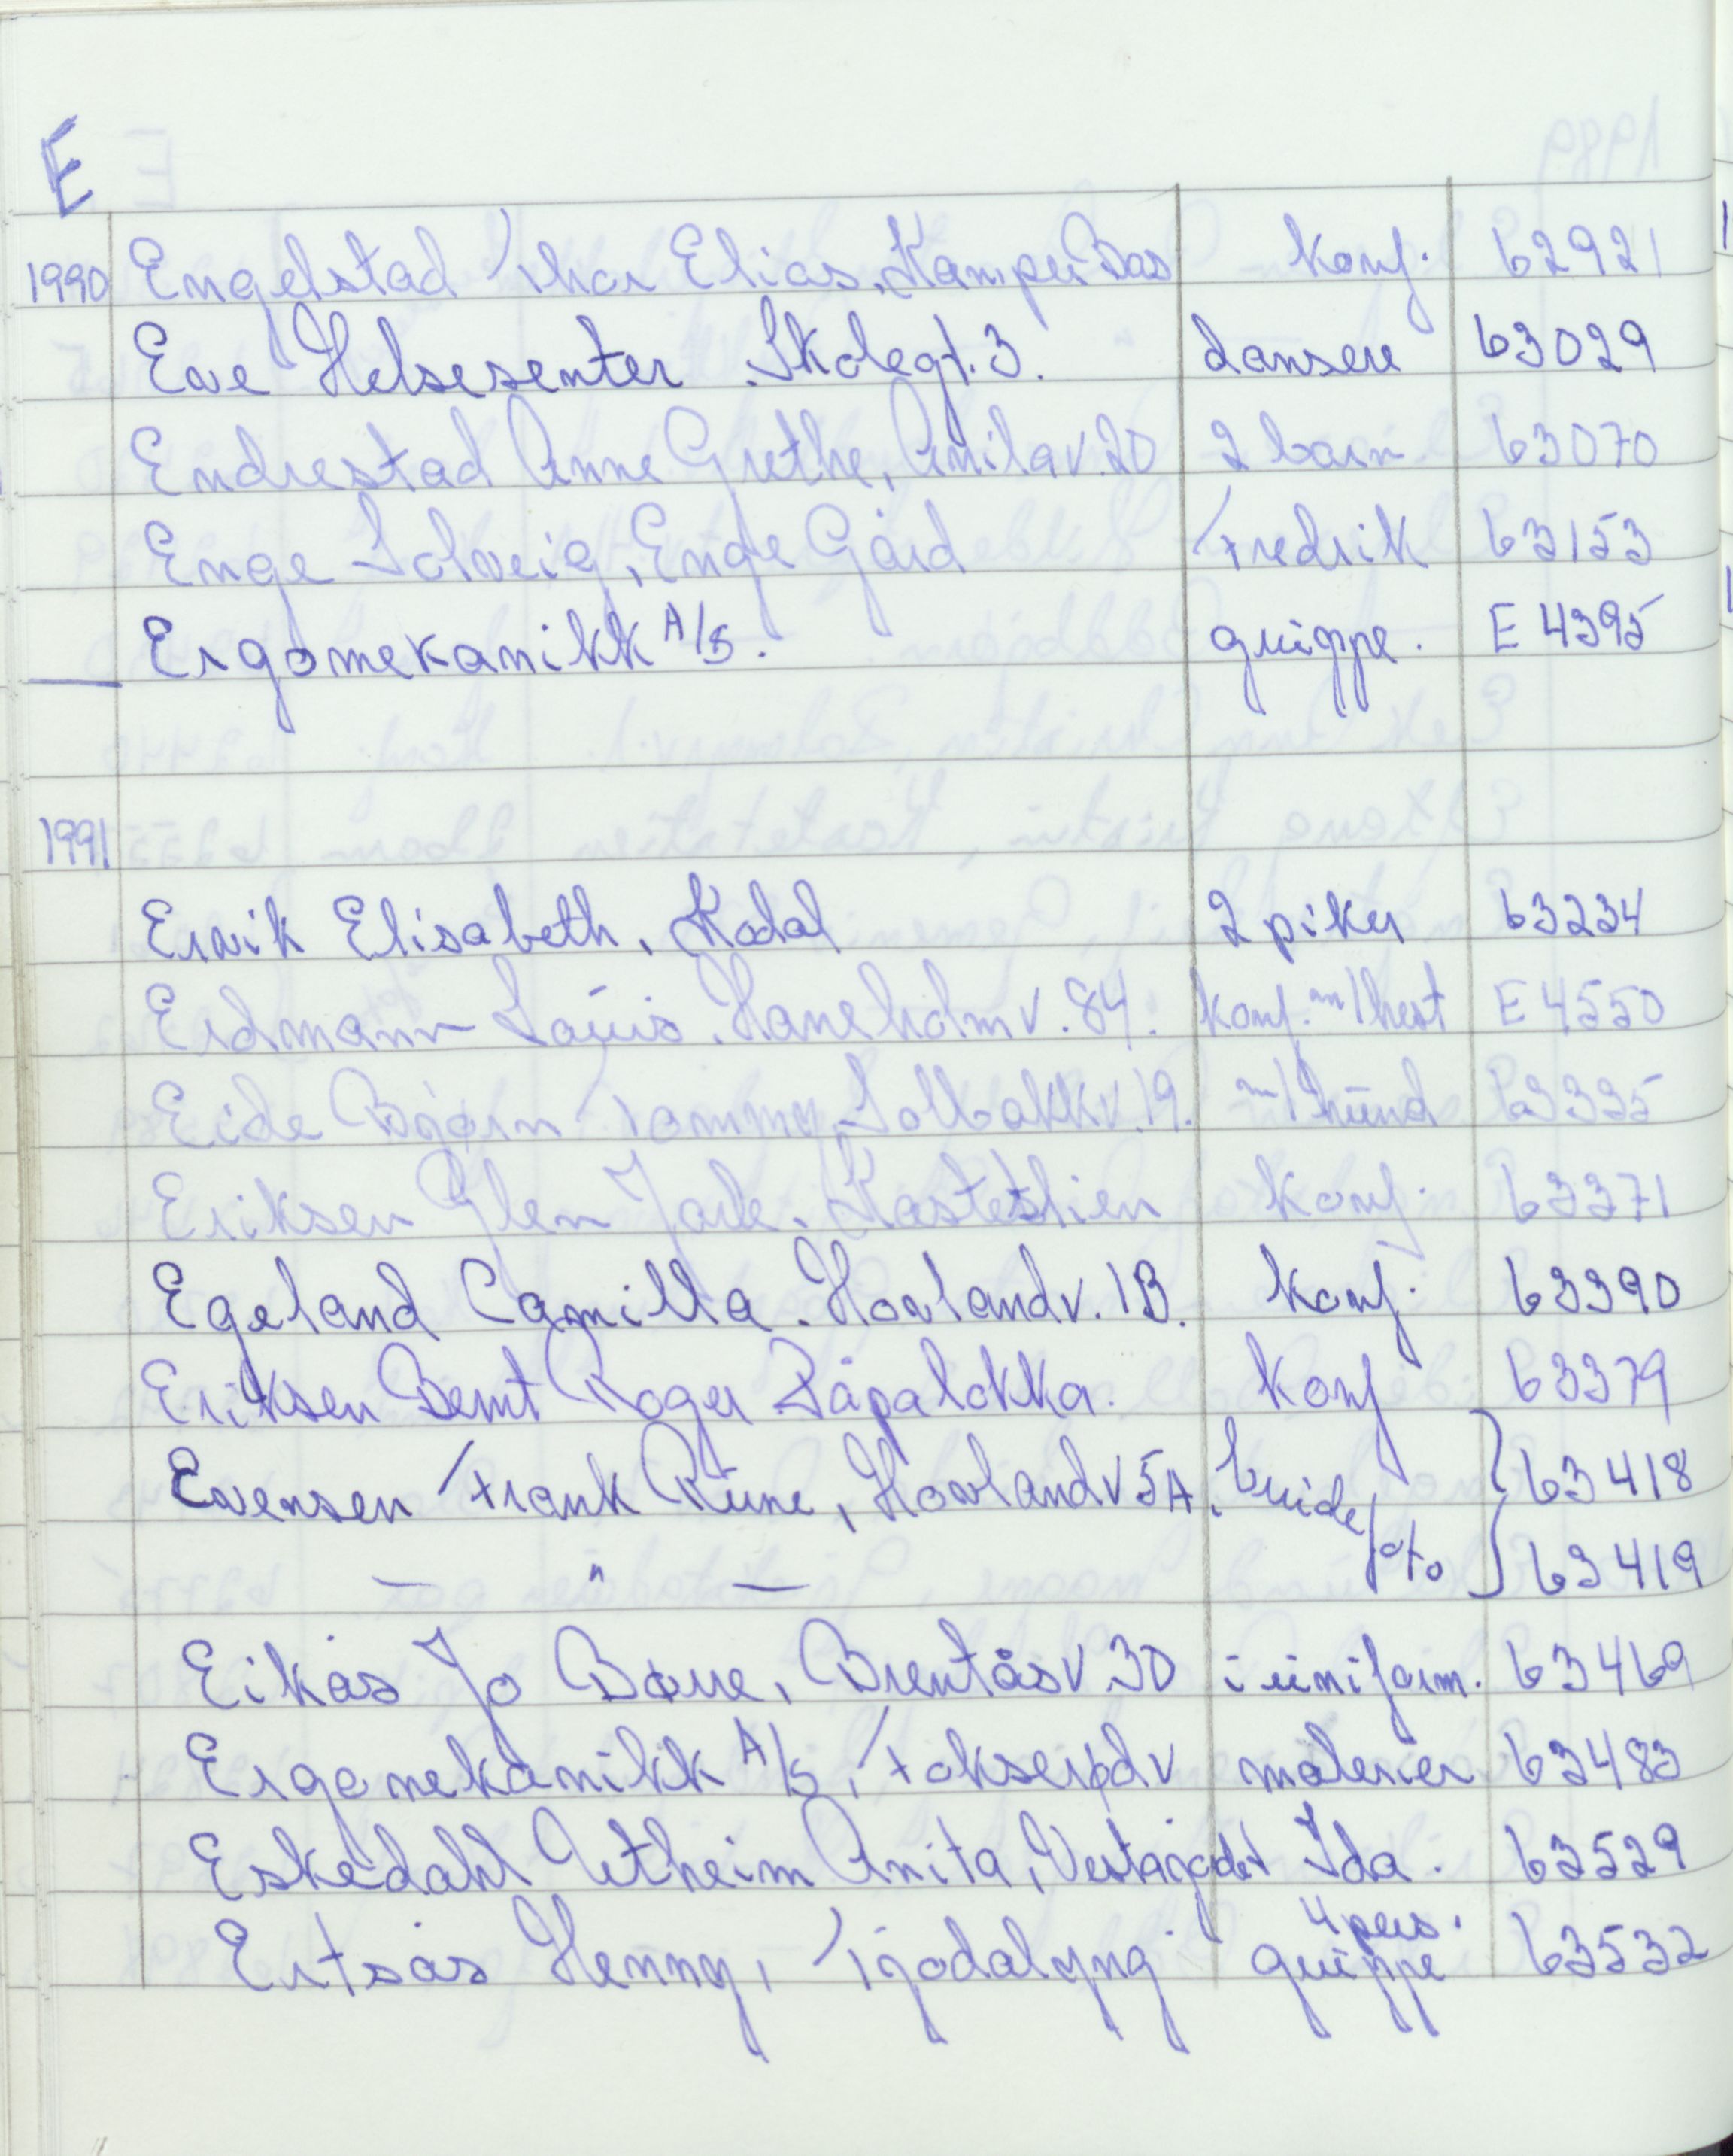 E
1990 Engelstad Thor Elias. Kamperbås konf. 62921
Eve Helsesenter. Skolegt. 3. dansere 63029
Endrestad Anne Grethe, Anilav. 20 2 barn 63070
Enge Solveig, Enge Gård Fredrik 63153
Ergomekanikk A/S. gruppe. E 4395
1991
Ervik Elisabeth, Kodal 2 piker 63234
Erdmann Louis. Haneholmv. 84. konf. m/hest E 4550
Eide Bjørn Tommy, Solbakkv. 19. m/hund 63335
Eriksen Glen Jarle. Kastetlien konf. 63371
Egeland Camilla. Hovlandv. 1B. konf. 63390
Eriksen Bernt Roger Råpaløkka. konf 63379
Evensen Frank Rune, Hovlandv 5A. brude 63418
— " — foto 63419
Eikås Jo Børre, Brentåsv 30 i uniform. 63469
Ergomekanikk A/S, Fokserødv malerier 63483
Eskedahl Utheim Anita, Ida. 63529
4 pers.
Ertsås Henny, Tjødalyng gruppe 63532